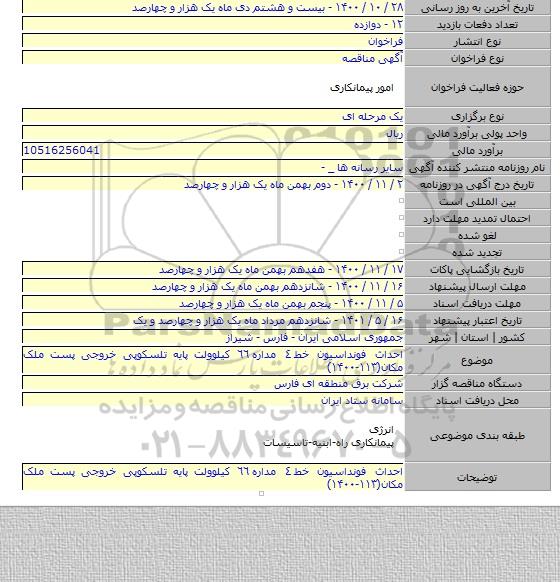 تاریخ آخرین به روز رسانی ۲۸ / ۱۰ / ۱۴۰۰ - بیست و هشتم دی ماه یک هزار و چهارصد
تعداد دفعات بازدید ۱۲ - دوازده
نوع انتشار فراخوان
نوع فراخوان آگهی مناقصه
حوزه فعالیت فراخوان امور پیمانکاری
نوع برگزاری یک مرحله ای
واحد پولی برآورد مالی ریال
برآورد مالی 10516256041
نام روزنامه منتشر کننده آگهی سایر رسانه ها _ -
تاریخ درج آگهی در روزنامه ۲ / ۱۱ / ۱۴۰۰ - دوم بهمن ماه یک هزار و چهارصد
بین المللی است
احتمال تمدید مهلت دارد
لغو شده
تجدید شده
تاریخ بازگشایی پاکات ۱۷ / ۱۱ / ۱۴۰۰ - هفدهم بهمن ماه یک هزار و چهارصد
مهلت ارسال پیشنهاد ۱۶ / ۱۱ / ۱۴۰۰ - شانزدهم بهمن ماه یک هزار و چهارصد
مهلت دریافت اسناد ۵ / ۱۱ / ۱۴۰۰ - پنجم بهمن ماه یک هزار و چهارصد
تاریخ اعتبار پیشنهاد ۱۶ / ۵ / ۱۴۰۱ - شانزدهم مرداد ماه یک هزار و چهارصد و یک
کشور | استان | شهر جمهوری اسلامی ایران - فارس - شیراز
موضوع احداث فونداسیون خط ٤ مداره ٦٦ کیلوولت پایه تلسکوپی خروجی پست ملک
مکان(۱۱۳-۱۴۰۰)
دستگاه مناقصه گزار شرکت برق منطقه ای فارس
محل دریافت اسناد سامانه ستاد ایران
طبقه بندی موضوعی انرژی
پیمانکاری راه-ابنیه-تاسیسات
توضیحات احداث فونداسیون خط ٤ مداره ٦٦ کیلوولت پایه تلسکوپی خروجی پست ملک
مکان(۱۱۳-۱۴۰۰)
ParsNamadData
پایگاه اطلاع رسانی مناقصه و مزایده
۰۲۱-۸۸۳۴۹۶۷۰-۵